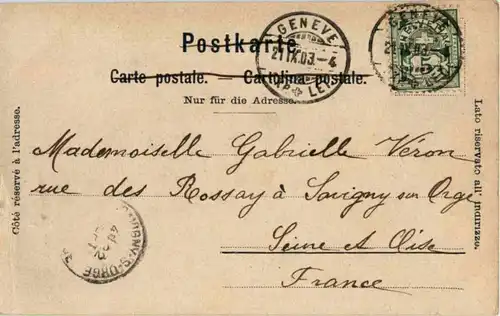 Postkarte
Carte postale. — Cartolina postale.
Nur für die Adresse.
GENEVE
21 IX.03-4
LET
GENEVE
21 IX.03
LET
5
Côté réservé à l'adresse.
Lato riservato all' indirizzo.
Mademoiselle Gabrielle Véron
rue des Rossay à Savigny sur Orge
Seine et Oise
France
SAVIGNY-S-ORGE